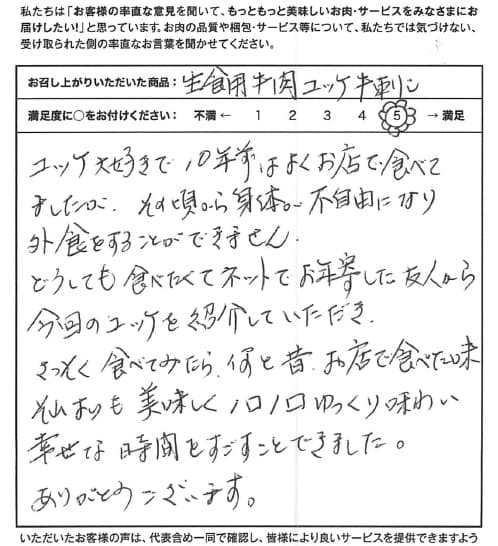 私たちは「お客様の率直な意見を聞いて、もっともっと美味しいお肉・サービスをみなさまにお
届けしたい！」と思っています。お肉の品質や梱包・サービス等について、私たちでは気づけない、
受け取られた側の率直なお言葉を聞かせてください。
お召し上がりいただいた商品： 生食用牛肉ユッケ牛刺し
満足度に○をお付けください： 不満 ← 1 2 3 4 5 → 満足
ユッケ大好きで10年前はよくお店で食べて
ましたが、その頃から身体が不自由になり
外食をすることができません。
どうしても食べたくてネットでお年寄した友人から
今回のユッケを紹介していただき、
さっそく食べてみたら、何と昔、お店で食べた味
それよりも美味しくパクパクゆっくり味わい
幸せな時間をすごすことできました。
ありがとうございます。
いただいたお客様の声は、代表含め一同で確認し、皆様により良いサービスを提供できますよう